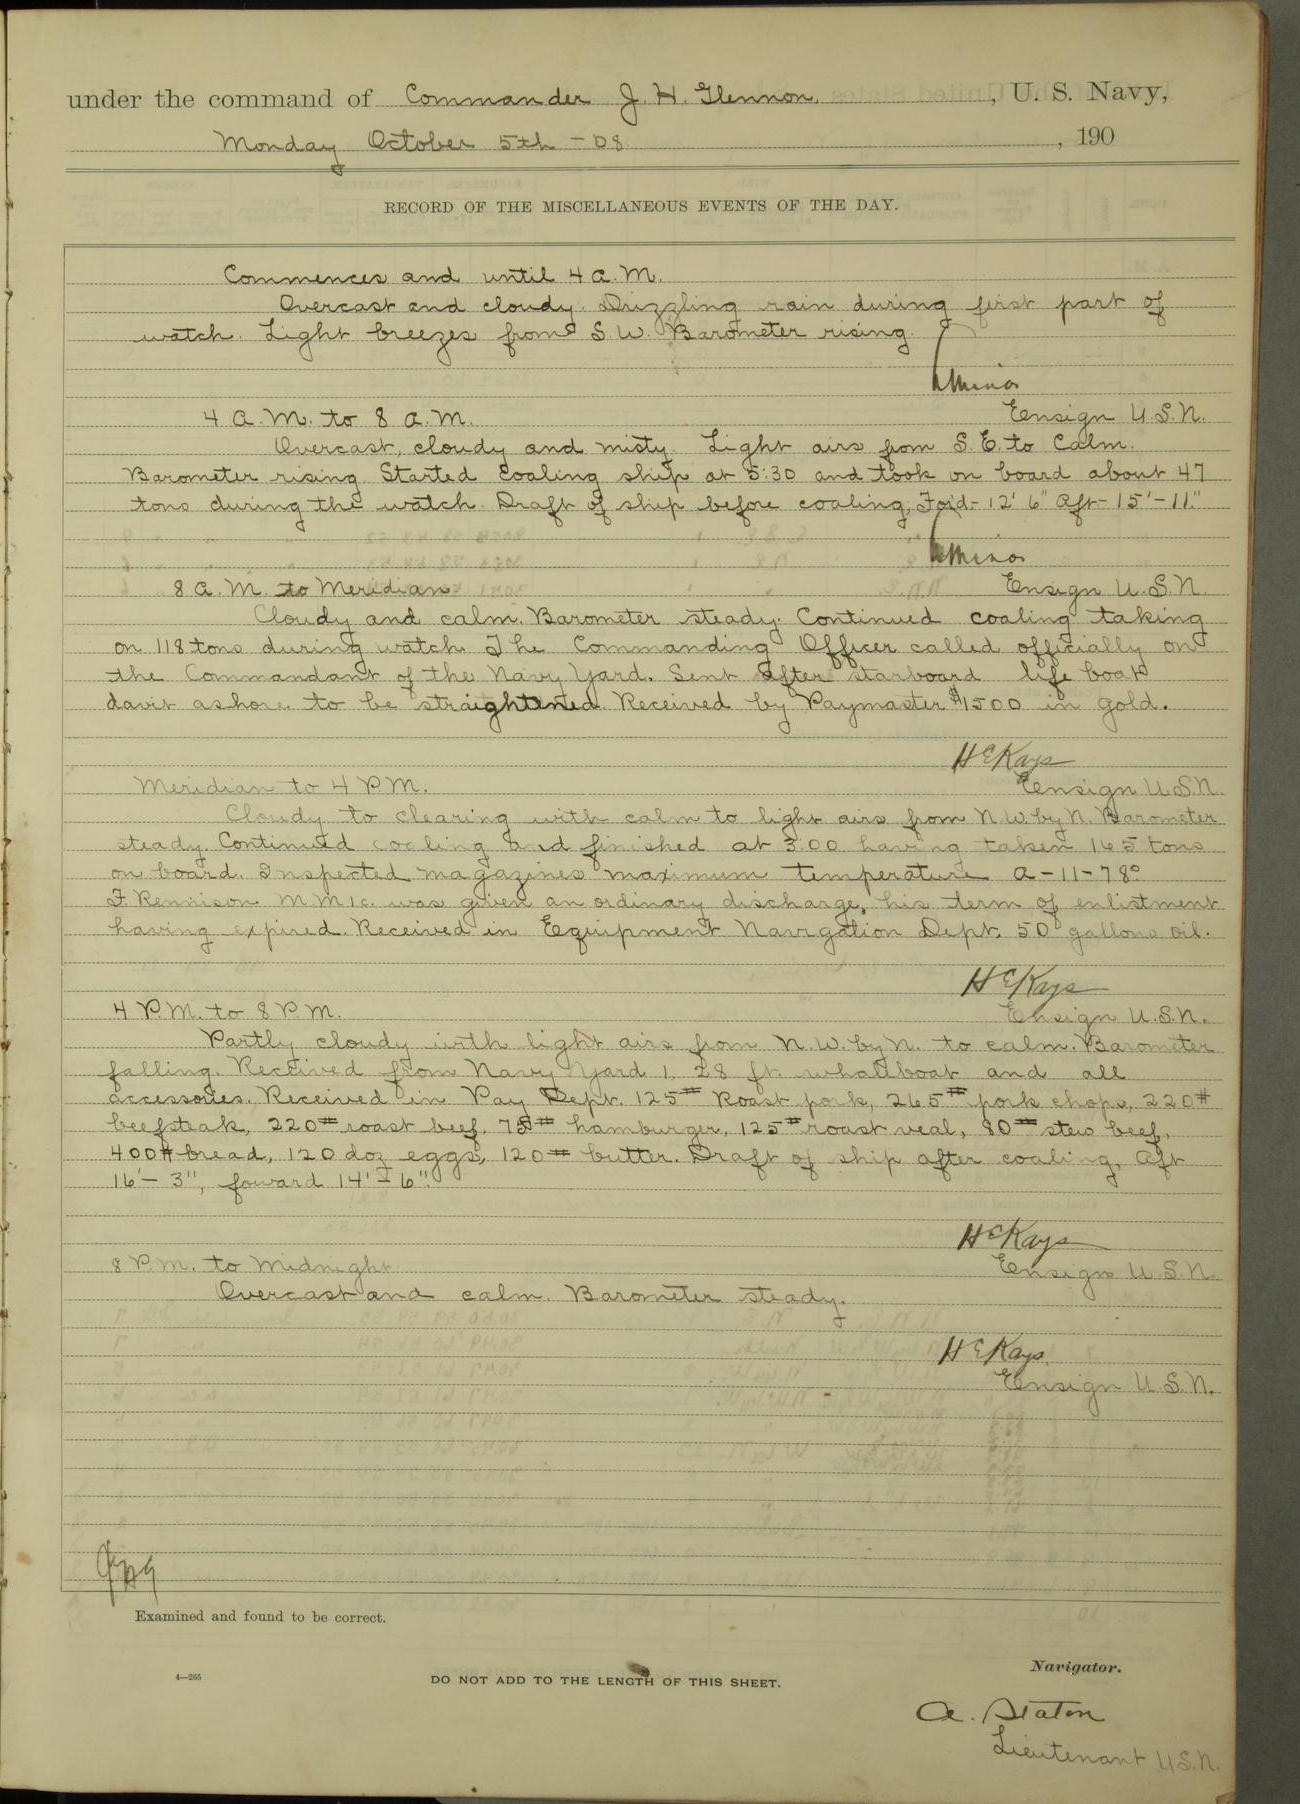 under the command of Commander J. H. Glennon, U. S. Navy,
Monday October 5th - 08, 190
RECORD OF THE MISCELLANEOUS EVENTS OF THE DAY.
Commences and until 4 a.m.
Overcast and cloudy. Drizzling rain during first part of
watch. Light breezes from S.W. Barometer rising.
Minor
4 a.m. to 8 a.m. Ensign U.S.N.
Overcast, cloudy and misty. Light airs from S.E. to Calm.
Barometer rising. Started coaling ship at 5:30 and took on board about 47
tons during the watch. Draft of ship before coaling, For'd- 12' 6" Aft- 15' - 11".
Minor
8 A.M. to Meridian Ensign U.S.N.
Cloudy and calm. Barometer steady. Continued coaling taking
on 118 tons during watch. The Commanding Officer called officially on
the Commandant of the Navy Yard. Sent after starboard life boat
davit ashore to be straightened. Received by Paymaster $1500 in gold.
H E Kays
Meridian to 4 P.M. Ensign U.S.N.
Cloudy to clearing with calm to light airs from N.W. by N. Barometer
steady. Continued coaling and finished at 3:00 having taken 165 tons
on board. Inspected magazines maximum temperature A-11-78°
F. Rennison M.M.1c. was given an ordinary discharge, his term of enlistment
having expired. Received in Equipment Navigation Dept. 50 gallons oil.
H E Kays
4 P.M. to 8 P.M. Ensign U.S.N.
Partly cloudy with light airs from N.W. by N. to calm. Barometer
falling. Received from Navy Yard 1, 28 ft. whaleboat and all
accessories. Received in Pay Dept. 125# Roast pork, 265# pork chops, 220#
beefsteak, 220# roast beef, 75# hamburger, 125# roast veal, 80# stew beef,
400# bread, 120 doz eggs, 120# butter. Draft of ship after coaling, Aft
16' - 3", foward 14' - 6".
H E Kays
8 P.M. to Midnight Ensign U.S.N.
Overcast and calm. Barometer steady.
H E Kays
Ensign U.S.N.
JHG
Examined and found to be correct.
Navigator.
4—265
DO NOT ADD TO THE LENGTH OF THIS SHEET.
A. Staton
Lieutenant U.S.N.